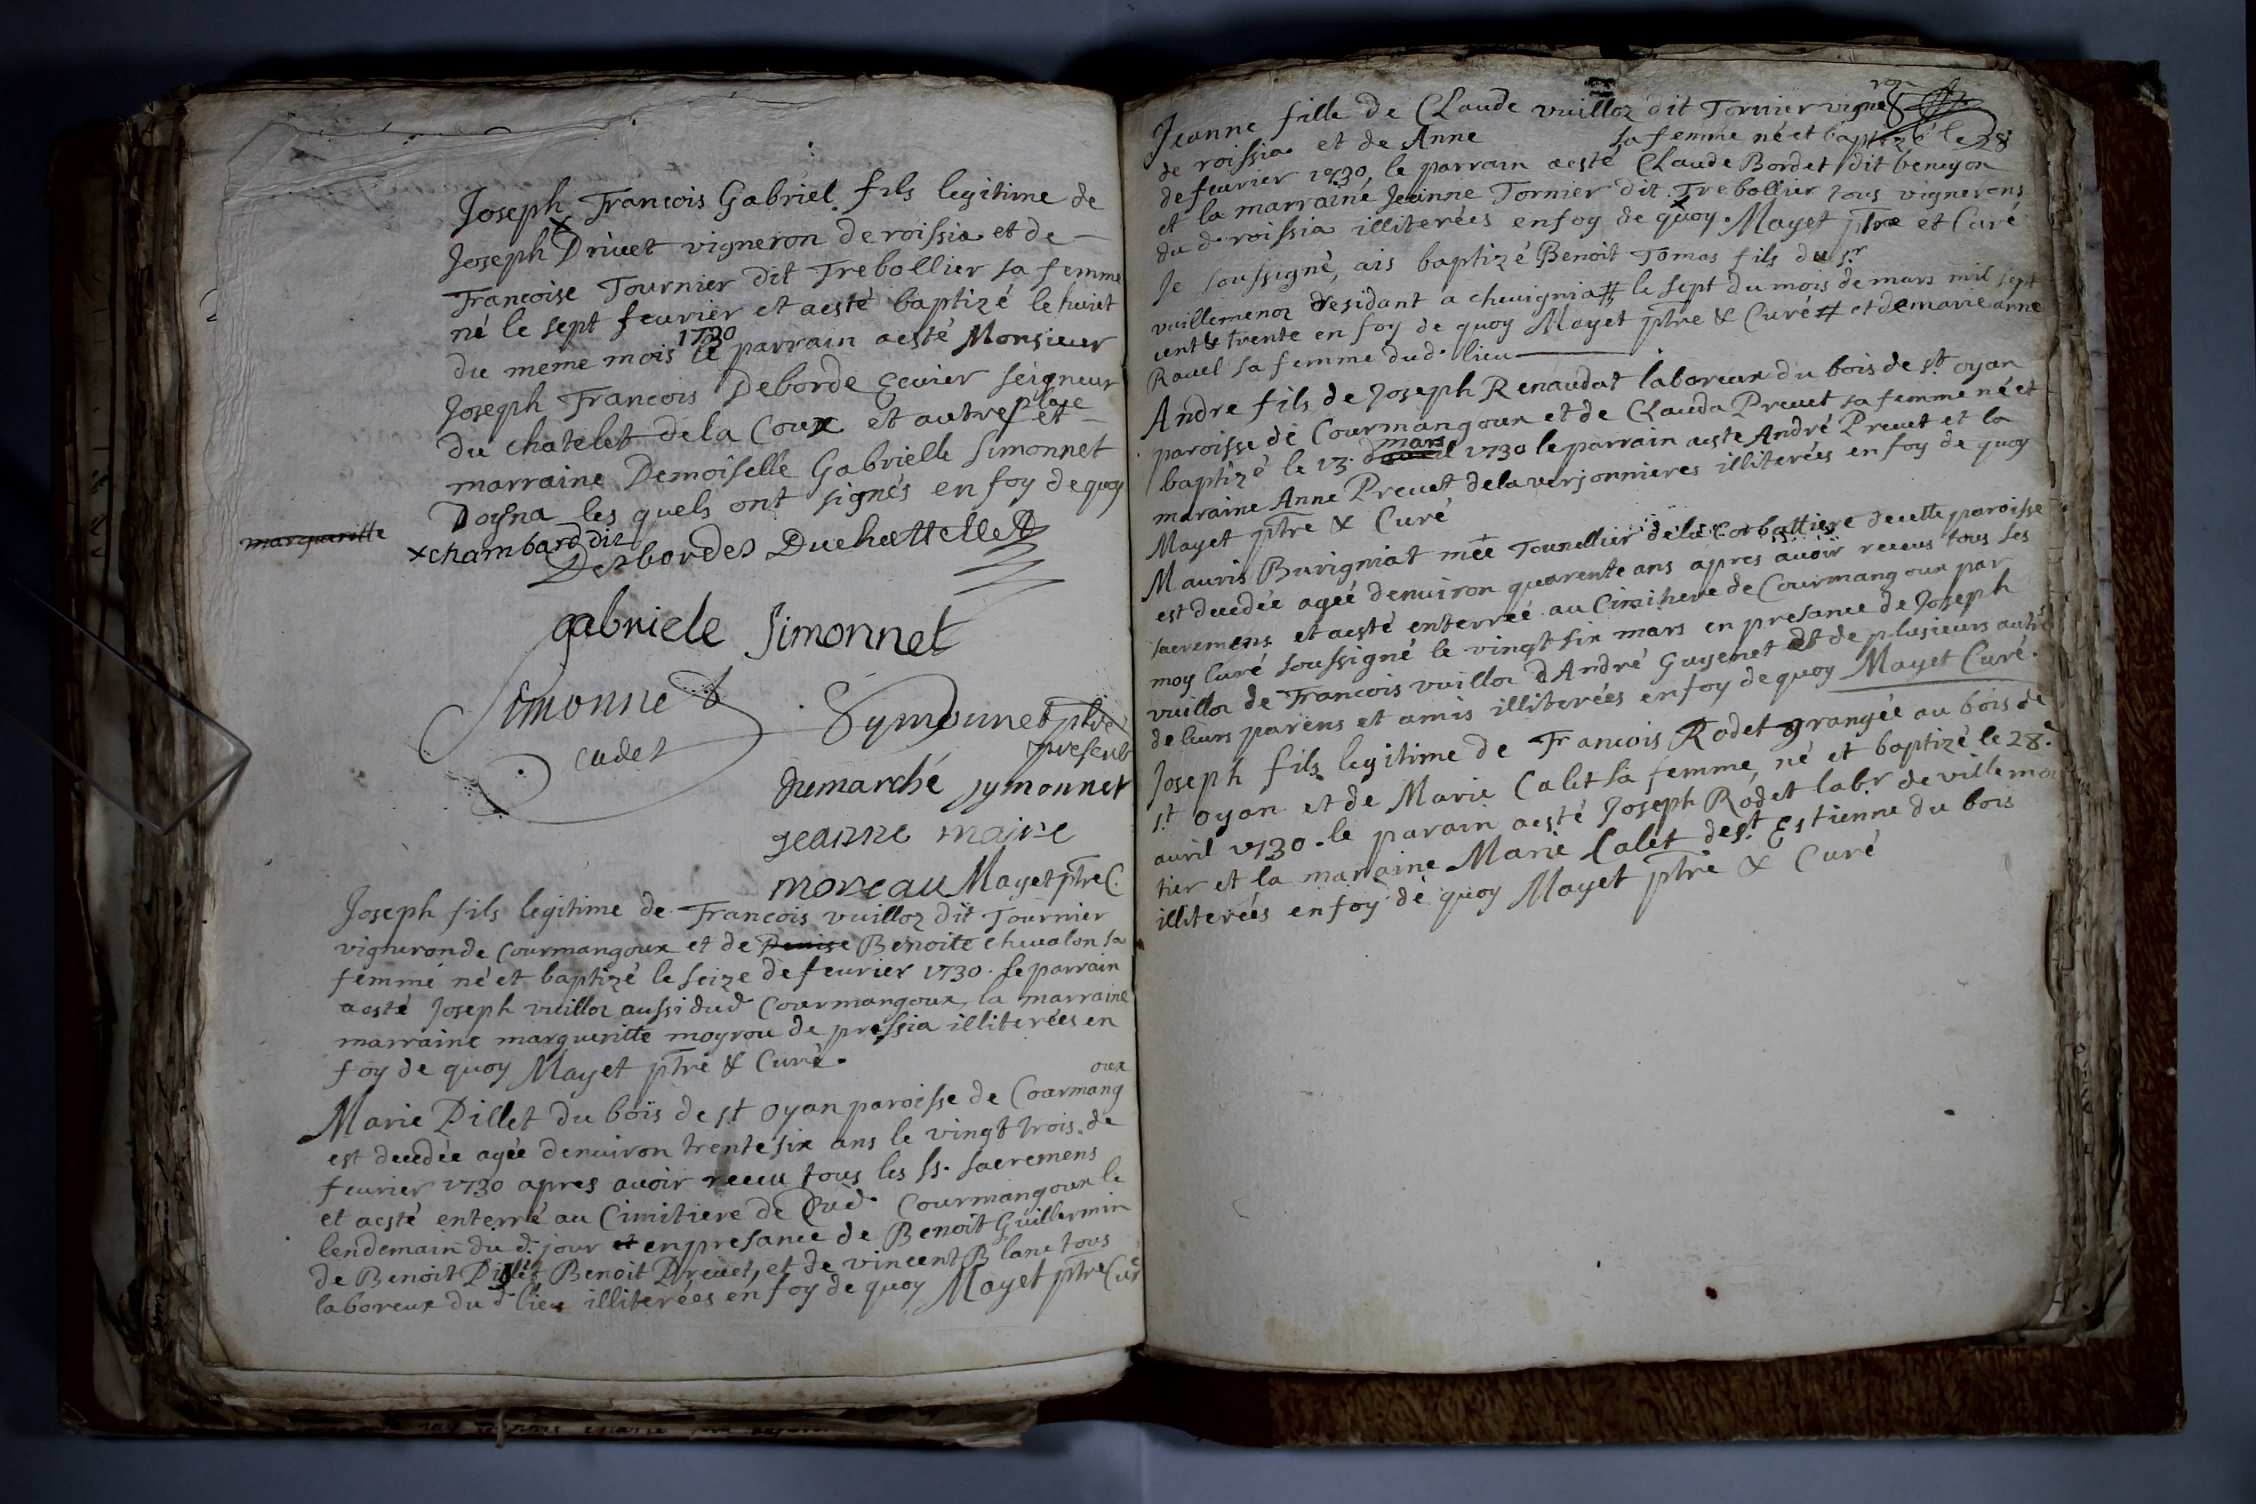 Joseph François Gabriel fils legitime de
Joseph x Drivet vigneron de roissia et de
Francoise Tournier dit Trebollier sa femme
né le sept feurier et aesté baptizé le huict
du meme mois 1730 le parrain aesté Monsieur
Joseph Francois Deborde Ecuier seigneur
du chatelet de la Coux et autres place et
marraine Demoiselle Gabrielle Simonnet
Doysna les quels ont signés en foy de quoy
margueritte
x chambard dit
Desbordes Duchattellet
gabriele simonnet
Simonnet
cadet
Symonnet ptre
present
Jumarché symonnet
jeanne maire
moreau Mayet ptre C.
Joseph fils legitime de Francois vuilloz dit Tournier
vigneron de Courmangoux et de Denise Benoite chevalon sa
femme né et baptizé le seize de feurier 1730. le parrain
aesté Joseph vuilloz aussi dud Courmangoux, la marraine
marraine margueritte moyrou de pressia illiterées en
foy de quoy Mayet ptre & Curé.
Marie Pillet du bois de st oyan paroisse de Courmangoux
est decedée agée denuiron trente six ans le vingt trois de
feurier 1730 apres auoir receu tous les ss. sacremens
et aesté enterré au Cimitiere de Dud. Courmangoux le
lendemain du d. jour et en presance de Benoit Guillermin
de Benoit Pillet Benoit Preuet, et de vincent Blanc tous
laboreux du d lieu illiterées en foy de quoy Mayet ptre Curé
Jeanne fille de Claude vuilloz dit Tornier vigneron
de roissia et de Anne sa femme né et baptizé le 28
de feurier 1730, le parrain aesté Claude Bordet dit benuyon
et la marraine Jeanne Tornier dit Trebollier tous vignerons
du d roissia illiterées en foy de quoy Mayet ptre et Curé
Je soussigné, ais baptizé Benoit Tomas fils du sr
vuillemenoz residant a cheuignia # le sept du mois de mars mil sept
cent & trente en foy de quoy Mayet ptre & Curé # et de marie anne
Rauel sa femme dud. lieu
Andre fils de Joseph Renaudat laboreux du bois de st. oyan
paroisse de Courmangoux et de Clauda Preuet sa femme né et
baptizé le 13. d'auril mars 1730 le parrain aesté André Preuet et la
maraine Anne Preuet de la verjonnieres illiterées en foy de quoy
Mayet ptre & Curé
Mauris Burigniat mée Tounellier de la Corbattiere de cette paroisse
est decedée ageé denuiron quarente ans apres auoir receus tous les
sacremens et aesté enterreé au Cimitiere de Courmangoux par
moy Curé soussigné le vingt six mars en presance de Joseph
vuilloz de Francois vuilloz d'André Guyenet et de plusieurs autre
de leurs parens et amis illiterées en foy de quoy Mayet Curé.
Joseph fils legitime de Francois Rodet grangée au bois de
st oyan et de Marie Calet sa femme, né et baptizé le 28.e
auril 1730. le parain aesté Joseph Rodet labr de villemou
tier et la maraine Marie Calet de st. Estienne du bois
illiterées en foy de quoy Mayet ptre & Curé